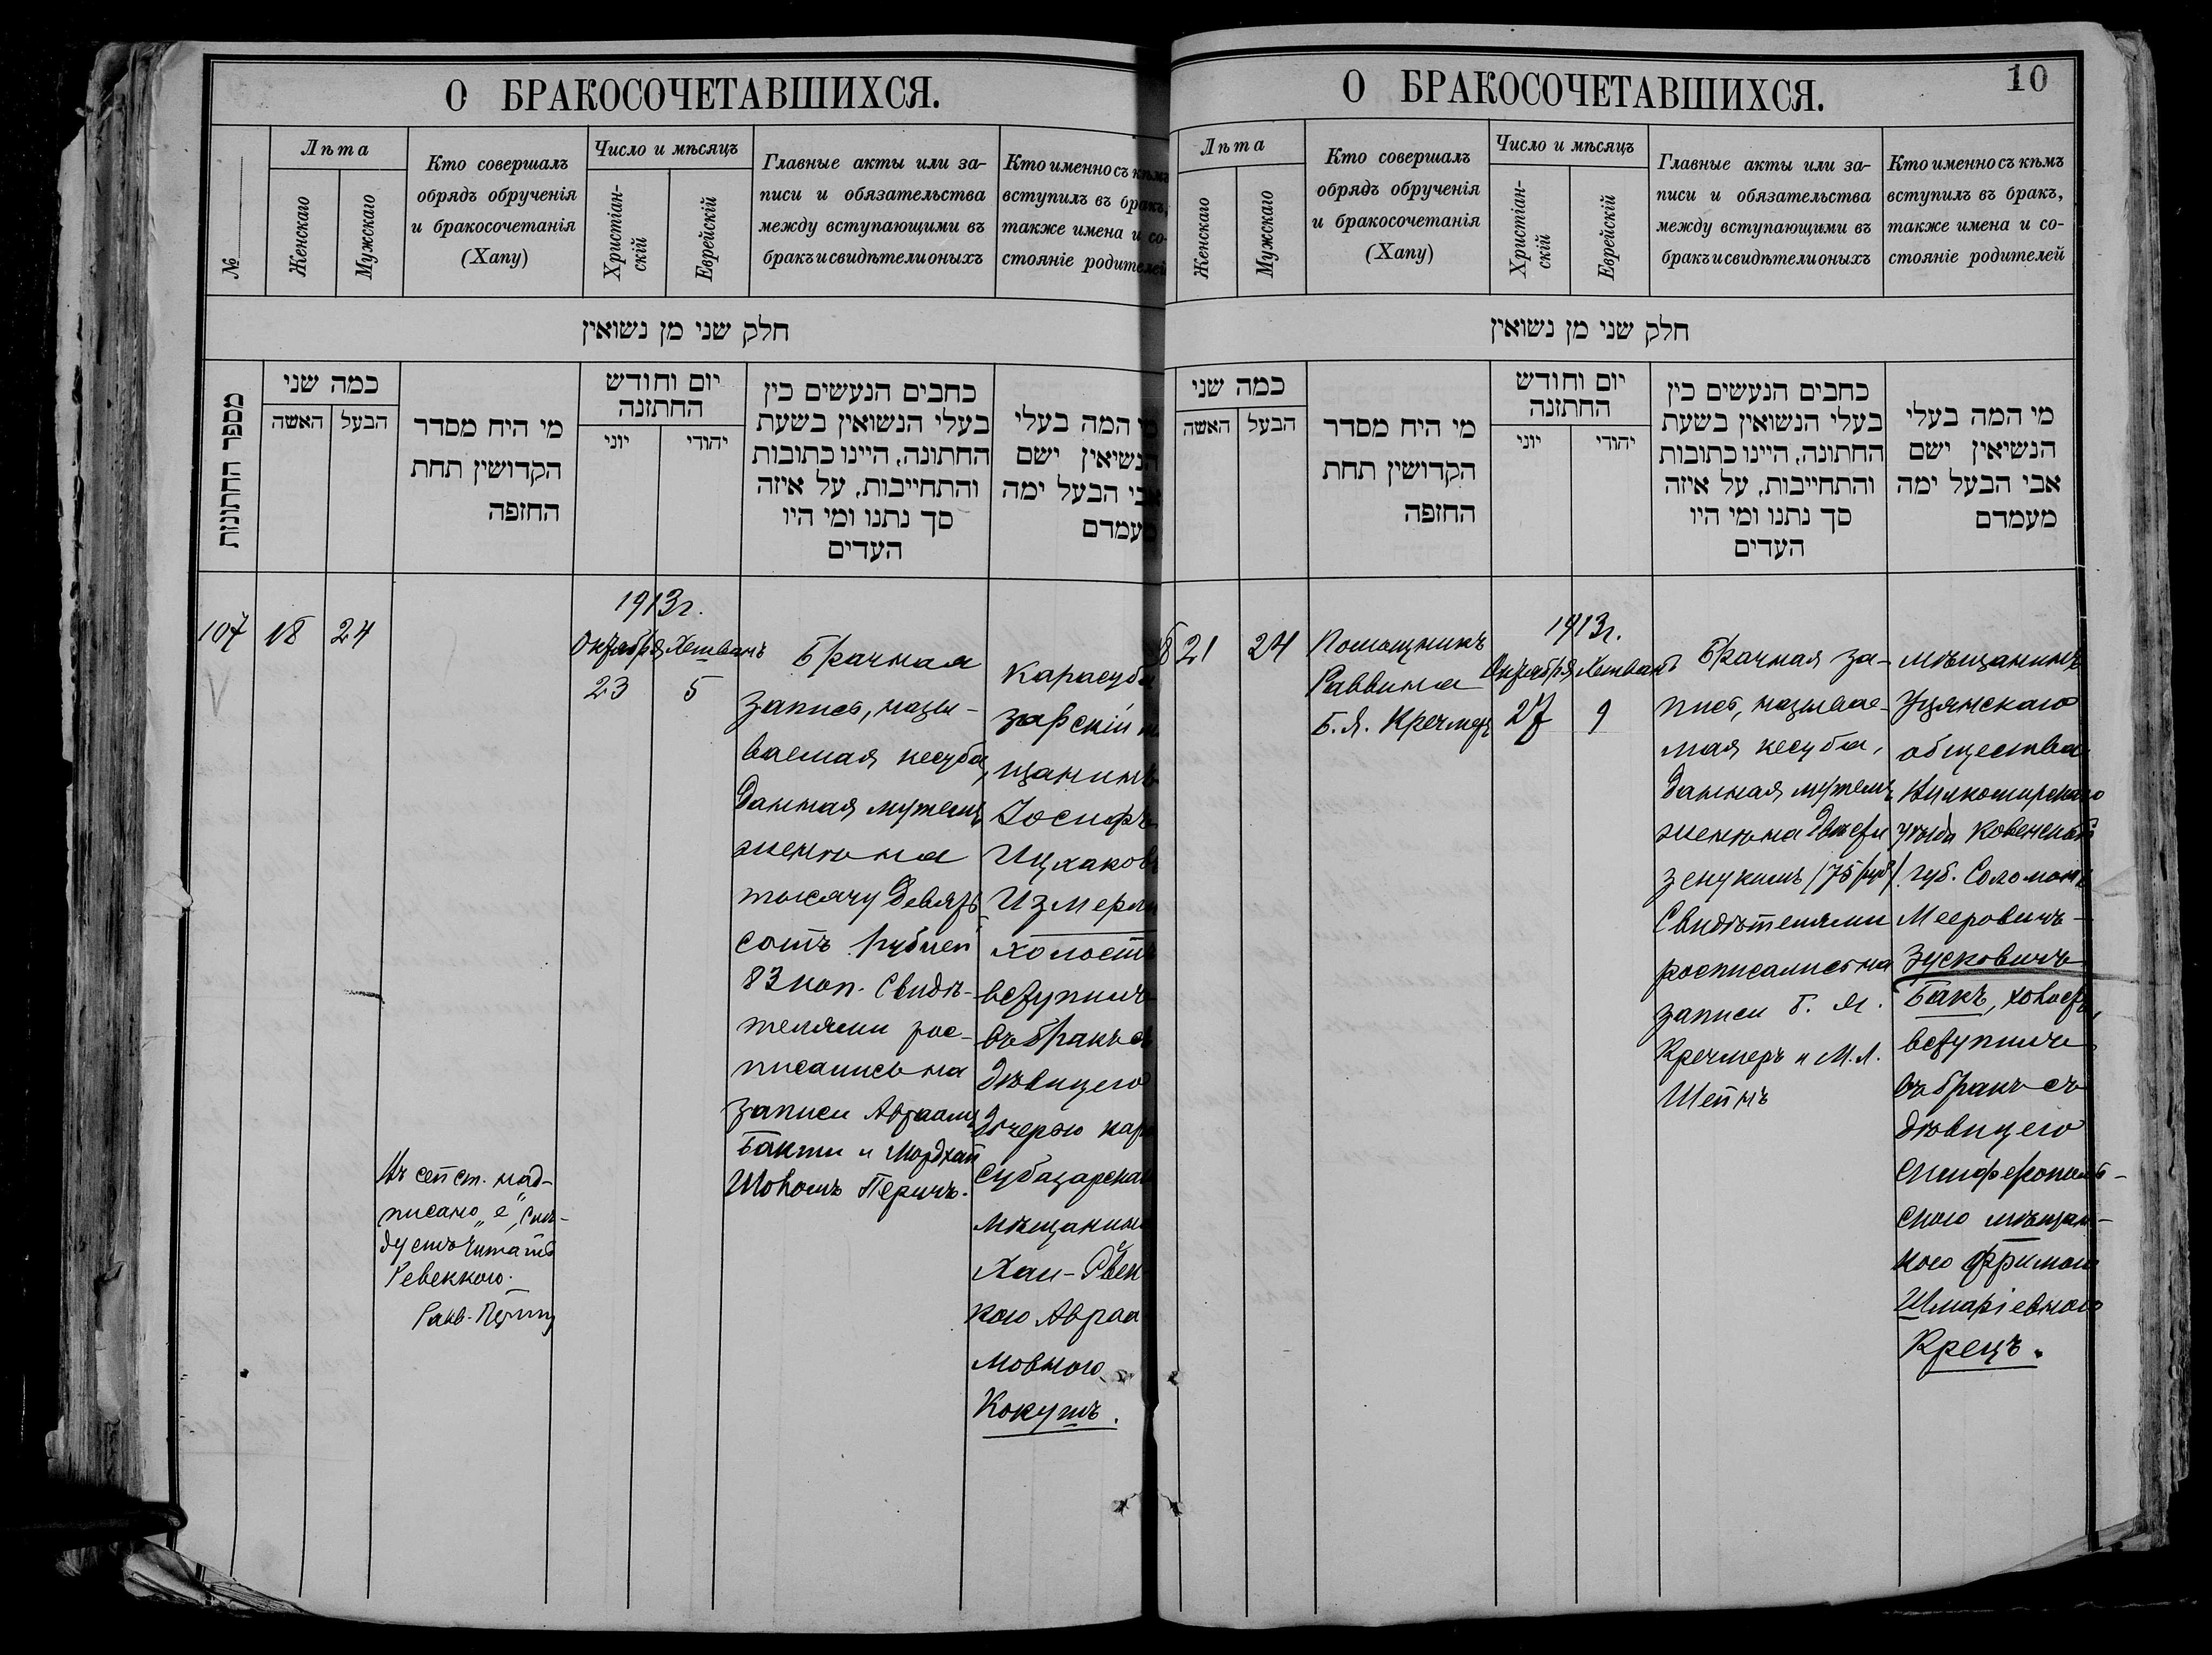 О БРАКОСОЧЕТАВШИХСЯ.
№
Лѣта
Женскаго
Мужскаго
Кто совершалъ
обрядъ обрученія
и бракосочетанія
(Хапу)
Число и мѣсяцъ
Христіан-
скій
Еврейскій
Главные акты или за-
писи и обязательства
между вступающими въ
бракъ и свидѣтели оныхъ
Кто именно съ кѣмъ
вступилъ въ бракъ,
также имена и со-
стояніе родителей
חלק שני מן נשואין
מספר החתונות
כמה שני
האשה
הבעל
מי היח מסדר
הקדושין תחת
החופה
יום וחודש
החתזנה
יוני
יהודי
כחבים הנעשים כין
בעלי הנשואין בשעת
החתונה, היינו כתובות
והתחייבות, על איזה
סך נתנו ומי היו
העדים
מי המה בעלי
הנשיאין ישם
אבי הבעל ימה
מעמדם
107
18
24
1913г.
Октября
23
Хешванъ
5
Брачная
запись, назы-
ваемая кесуба,
данная мужемъ
женѣ на
тысячу девять
сотъ рублей
83 коп. Свидѣ-
телями рос-
писались на
записи Авраамъ
Бакши и Мордхай
Шоломъ Перичъ.
Карасуба
зарскій м
щанинъ
Іосифъ
Ицхаковъ
Измерли
холостъ
вступилъ
въ бракъ съ
дѣвицею
дочерью кара
субазарскаго
мѣщанина
Хан-Рвек
кою Авраа
мовною
Кокушъ.
На сей ст. над-
писано „е“, слѣ-
дуетъ читать
Ревеккою.
Равв.
О БРАКОСОЧЕТАВШИХСЯ.
10
Лѣта
Женскаго
Мужскаго
Кто совершалъ
обрядъ обрученія
и бракосочетанія
(Хапу)
Число и мѣсяцъ
Христіан-
скій
Еврейскій
Главные акты или за-
писи и обязательства
между вступающими въ
бракъ и свидѣтели оныхъ
Кто именно съ кѣмъ
вступилъ въ бракъ,
также имена и со-
стояніе родителей
חלק שני מן נשואין
כמה שני
האשה
הבעל
מי היח מסדר
הקדושין תחת
החופה
יום וחודש
החתזנה
יוני
יהודי
כחבים הנעשים כין
בעלי הנשואין בשעת
החתונה, היינו כתובות
והתחייבות, על איזה
סך נתנו ומי היו
העדים
מי המה בעלי
הנשיאין ישם
אבי הבעל ימה
מעמדם
21
24
Помощникъ
Раввина
Б. Я. Кречмеръ
1913г.
Октября
27
Хешванъ
9
Брачная за-
пись, называе-
мая кесуба,
данная мужемъ
женѣ на двѣсти
зекукимъ /75 руб/
Свидѣтелями
росписались на
записи Б. Я.
Кречмеръ и М. Л.
Штейнъ
мѣщанинъ
Уцянскаго
общества
Вилкомирскаго
уѣзда Ковенской
губ. Соломонъ
Мееровичъ-
Зусковичъ
Бакъ, холостъ,
вступилъ
въ бракъ съ
дѣвицею
Симферополь-
скою мѣщан-
кою Фримою
Шмаріевною
Крецъ.